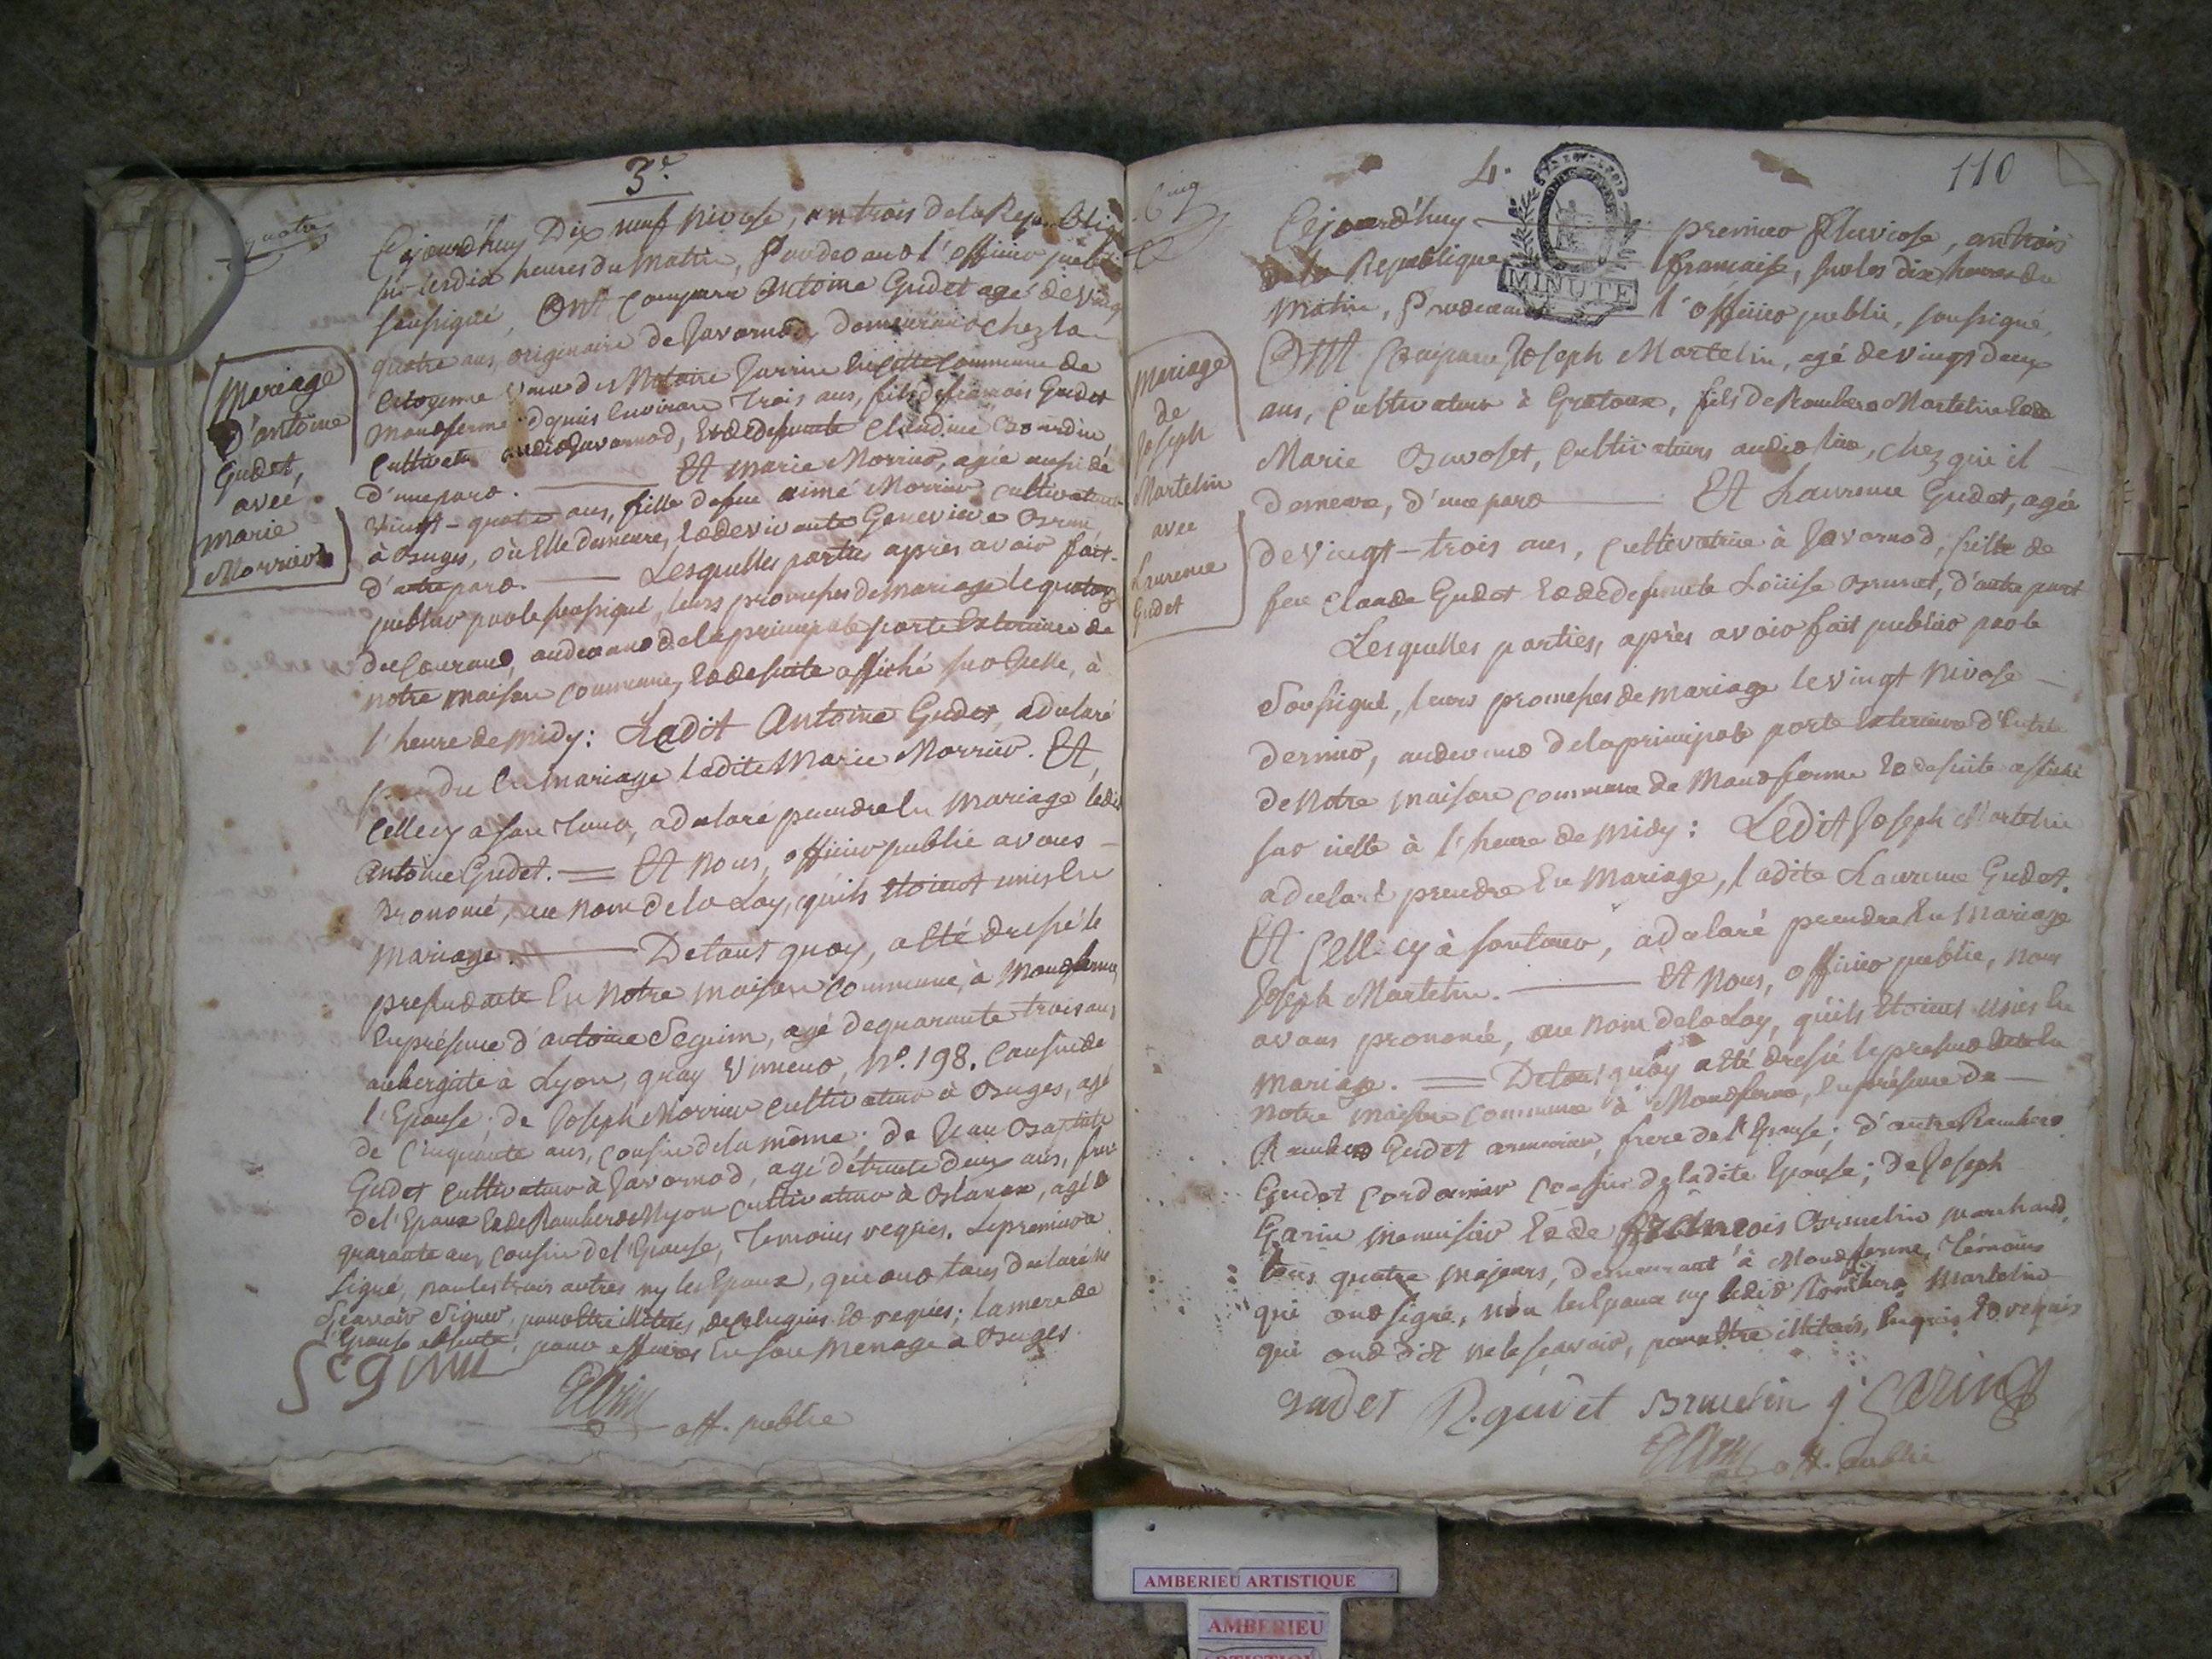 3.e
quatre
Cejourd'huy Dix neuf nivose, an trois de la Republique
sur les dix heures du matin, Pardevant l'officier public
soussigné, Ont comparu Antoine Gudet agé de vingt
quatre ans, originaire de Javornod, demeurant chez la
citoyenne veuve du Notaire Jurrin en cette commune de
Montferme depuis environ trois ans, fils de françois Gudet
cultivateur audit Javornod, et de defunte Claudine Bourdin
d'une part. Et Marie Morrier, agée aussi de
vingt-quatre ans, fille de feu aimé Morrier cultivateur
à Buges, où Elle demeure, et de vivante Genevieve Brun,
d'autre part. Lesquelles parties après avoir fait
publier par le soussigné, leurs promesses de mariage le quatorze
du Courant, audevant de la principale porte Exterieure de
notre maison commune, et de suite affiché sur Icelle, à
l'heure de midy: Ledit Antoine Gudet, a declaré
prendre En mariage ladite Marie Morrier. Et
Celle cy a son tour, a declaré prendre En mariage ledit
Antoine Gudet. Et nous, officier public avons
prononcé, au nom de la Loy, qu'ils Etoient unis En
mariage. De tout quoy, a Eté dressé le
present acte En notre maison commune, à Montferme,
En présence d'antoine Seguin, agé de quarante trois ans,
aubergiste à Lyon, quay Vimeux, N.o 198. Cousin de
l'Epouse; de Joseph Morrier cultivateur à Buges, agé
de Cinquante ans, cousin de la même; de Jean Baptiste
Gudet cultivateur à Javornod, agé de trente deux ans, frere
de l'Epoux et de Rambert Nyon cultivateur à Blanan, agé de
quarante ans, cousin de l'Epouse, Temoins requis. Le premier a
signé, non les trois autres ny les Epoux, qui ont tous declaré ne
Sçavoir Signer, pour être illiterés, de ce Enquis et requis; la mere de
l'Epouse absente, pour affaires En son menage a Buges.
Seguin
off. public
Mariage
d'antoine
Gudet,
avec
Marie
Morrier
4.
110
Cinq
MINUTE
Cejourd'huy premier Pluviose, an trois
de la Republique française, sur les dix heures du
matin, Pardevant l'officier public, soussigné,
Ont Comparu Joseph Martelin, agé de vingt deux
ans, Cultivateur à Gratoux, fils de Rambert Martelin et de
Marie Buvoset, cultivateurs audit lieu, chez qui il
demeure, d'une part Et Laurence Gudet, agée
de vingt-trois ans, cultivatrice à Javornod, fille de
feu Claude Gudet et de defunte Loüise Brunet, d'autre part
Lesquelles parties, après avoir fait publier par le
Soussigné, leurs promesses de mariage le vingt nivose
dernier, audevant de la principale porte Exterieure d'Entrée
de notre maison commune de Montferme et de suite affiché
sur icelle à l'heure de midy: Ledit Joseph Martelin
a declaré prendre En Mariage, ladite Laurence Gudet.
Et Celle cy à son tour, a declaré prendre En mariage
Joseph Martelin. Et nous, officier public, nous
avons prononcé, au nom de la Loy, qu'ils Etoient unis En
mariage. De tout quoy a Eté dressé le present acte En
notre maison commune à Montferme, En présence de
Rambert Gudet armurier, frere de l'Epouse; d'autre Rambert
Gudet cordonnier cousin de ladite Epouse; de Joseph
Garin menuisier et de françois Brunelin marchand,
tous quatre majeurs, demeurant à Montferme, Témoins
qui ont signé, non les Epoux ny ledit Rambert Martelin
qui ont dit ne le sçavoir, pour être illiterés, Enquis et requis
gudet R. gudet Brunelin J. Garin
off. public
Mariage
de
Joseph
Martelin
avec
Laurence
Gudet
AMBERIEU ARTISTIQUE
AMBERIEU
ARTISTIQUE